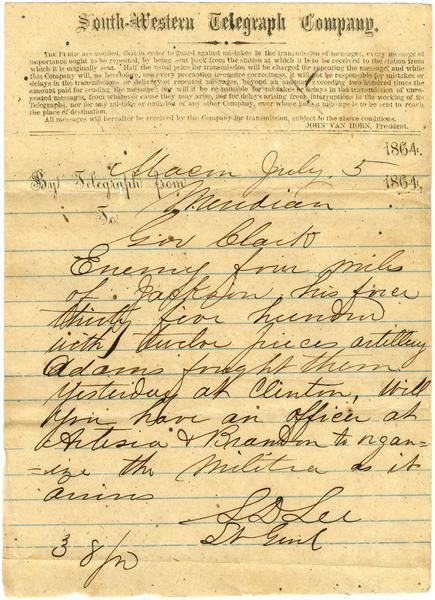 South-Western Telegraph Company.
The Public are notified, that in order to guard against mistakes in the transmission of messages, every message of
importance ought to be repeated, by being sent back from the station at which it is to be received to the station from
which it is originally sent. Half the usual price for transmission will be charged for repeating the message, and while
this Company will, as heretofore, use every precaution to ensure correctness, it will not be responsible for mistakes or
delays in the transmission or delivery of repeated messages, beyond an amount exceeding two hundred times the
amount paid for sending the message; nor will it be responsible for mistakes or delays in the transmission of unre-
peated messages, from whatever cause they may arise, nor for delays arising from interruptions in the working of its
Telegraphs, nor for any mistake or omission of any other Company, over whose lines a message is to be sent to reach
the place of destination.
All messages will hereafter be received by this Company for transmission, subject to the above conditions.
JOHN VAN HORN, President.
1864.
Macon July 5
By Telegraph from 1864,
To Meridian
Gov Clark
Enemy four miles
of Jackson, his force
thirty five hundred
with twelve pieces artillery
Adams fought them
yesterday at Clinton, Will
you have an officer at
Artesia & Brandon to organ-
-ize the Militia as it
arrives
S D Lee
Lt Genl
3 8/